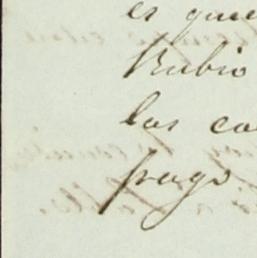 es que
Rubio
las co
pago